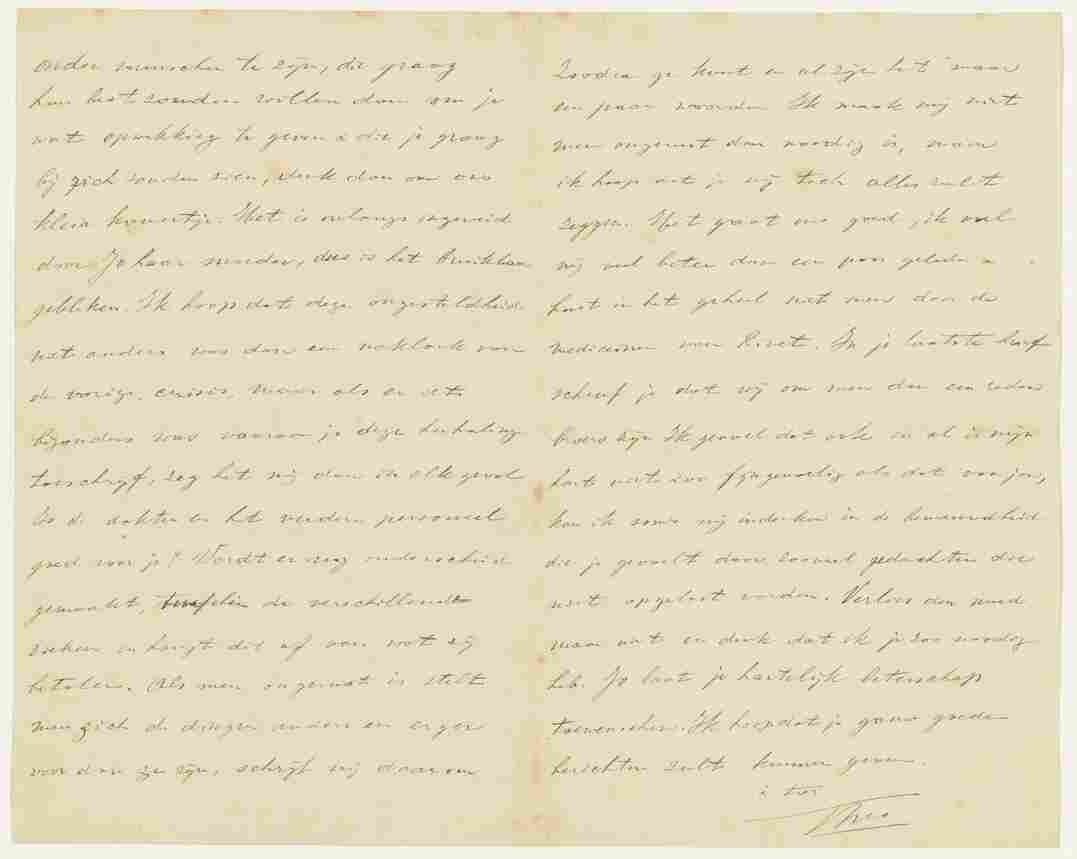 onder menschen te zijn, die graag
hun best zouden willen doen om je
wat opwekking te geven & die je graag
bij zich zouden zien, denk dan om ons
klein kamertje. Het is onlangs ingewijd
door Jo haar moeder, dus is het bruikbaar
gebleken. Ik hoop dat deze ongesteldheid
niet anders was dan een naklank van
de vorige crisis, maar als er iets
bijzonders was waaraan je deze herhaling
toeschrijft, zeg het mij dan in elk geval
Is de dokter en het verdere personeel
goed voor je? Wordt er nog onderscheid
gemaakt, tusschen de verschillende
zieken en hangt dit af van wat zij
betalen. Als men ongerust is stelt
men zich de dingen anders en erger
voor dan ze zijn, schrijf mij daarom
Zoodra je kunt en al zijn het maar
een paar woorden. Ik maak mij niet
meer ongerust dan noodig is, maar
ik hoop dat je mij toch alles zult
zeggen. Het gaat ons goed, ik voel
mij veel beter dan een paar geleden &
hoest in het geheel niet meer door de
medicijnen van Rivet. In je laatste brief
schreef je dat wij om meer dan een reden
broers zijn. Ik gevoel dat ook en al is mijn
hart niet zoo fijngevoelig als dat van jou,
kan ik soms mij indenken in de benauwdheid
die je gevoelt door zooveel gedachten die
niet opgelost worden. Verlies den moed
maar niet en denk dat ik je zoo noodig
heb. Jo laat je hartelijk beterschap
toewenschen. Ik hoop dat je gauw goede
berichten zult kunnen geven.
à toi
Theo